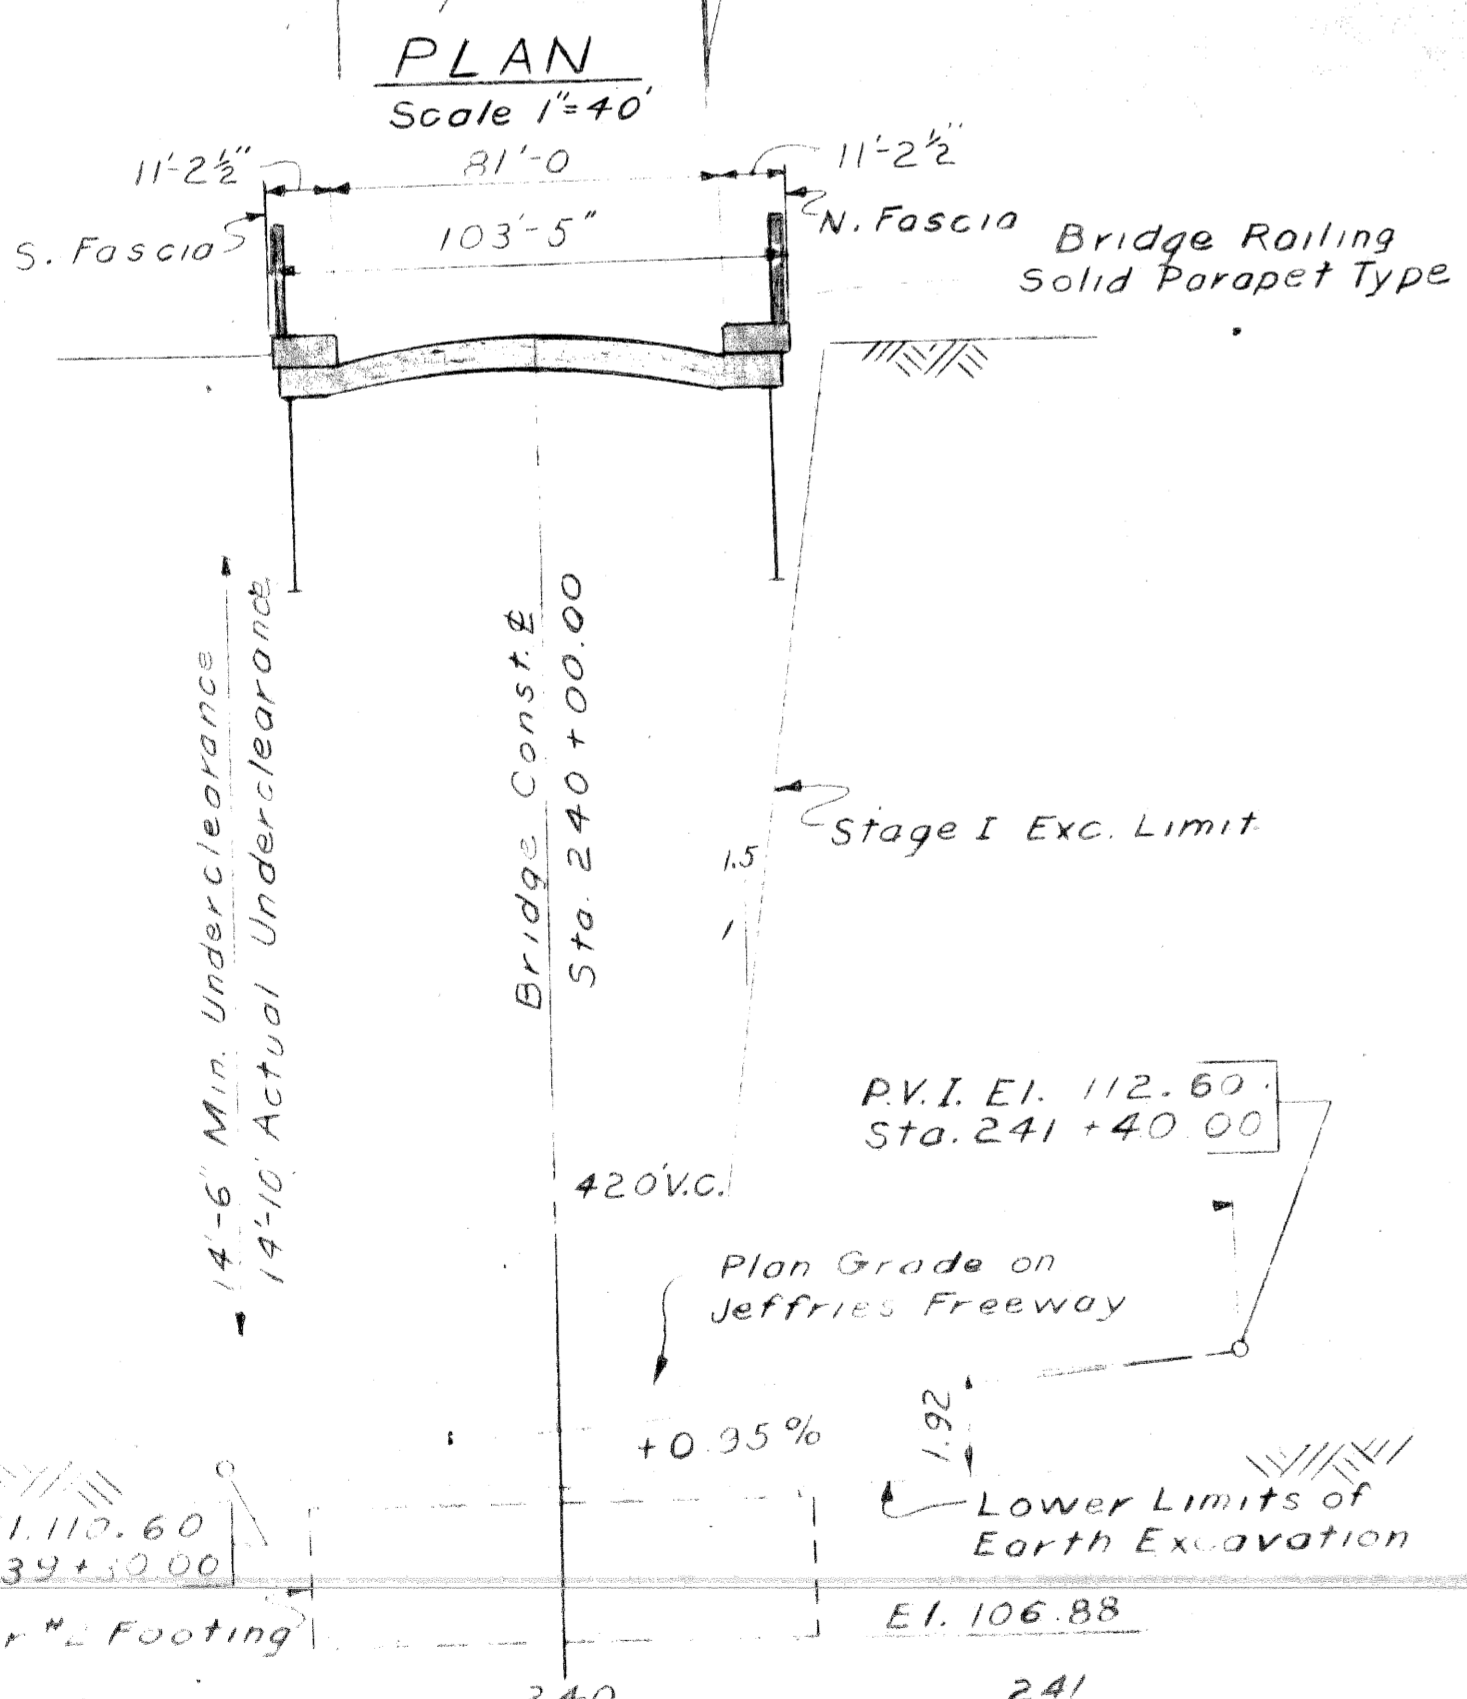 PLAN
Scale 1"=40'
11'-2½" 81'-0 11'-2½"
S. Fascia 103'-5" N. Fascia
Bridge Railing
Solid Parapet Type
14'-6" Min. Underclearance
14'-10" Actual Underclearance
Bridge Const. ℄
Sta. 240+00.00
Stage I Exc. Limit
1.5
1
P.V.I. El. 112.60
Sta. 241+40.00
420'V.C.
Plan Grade on
Jeffries Freeway
+0.95%
1.92
Lower Limits of
Earth Excavation
110.60
39+ 0.00
Footing
El. 106.88
240 241